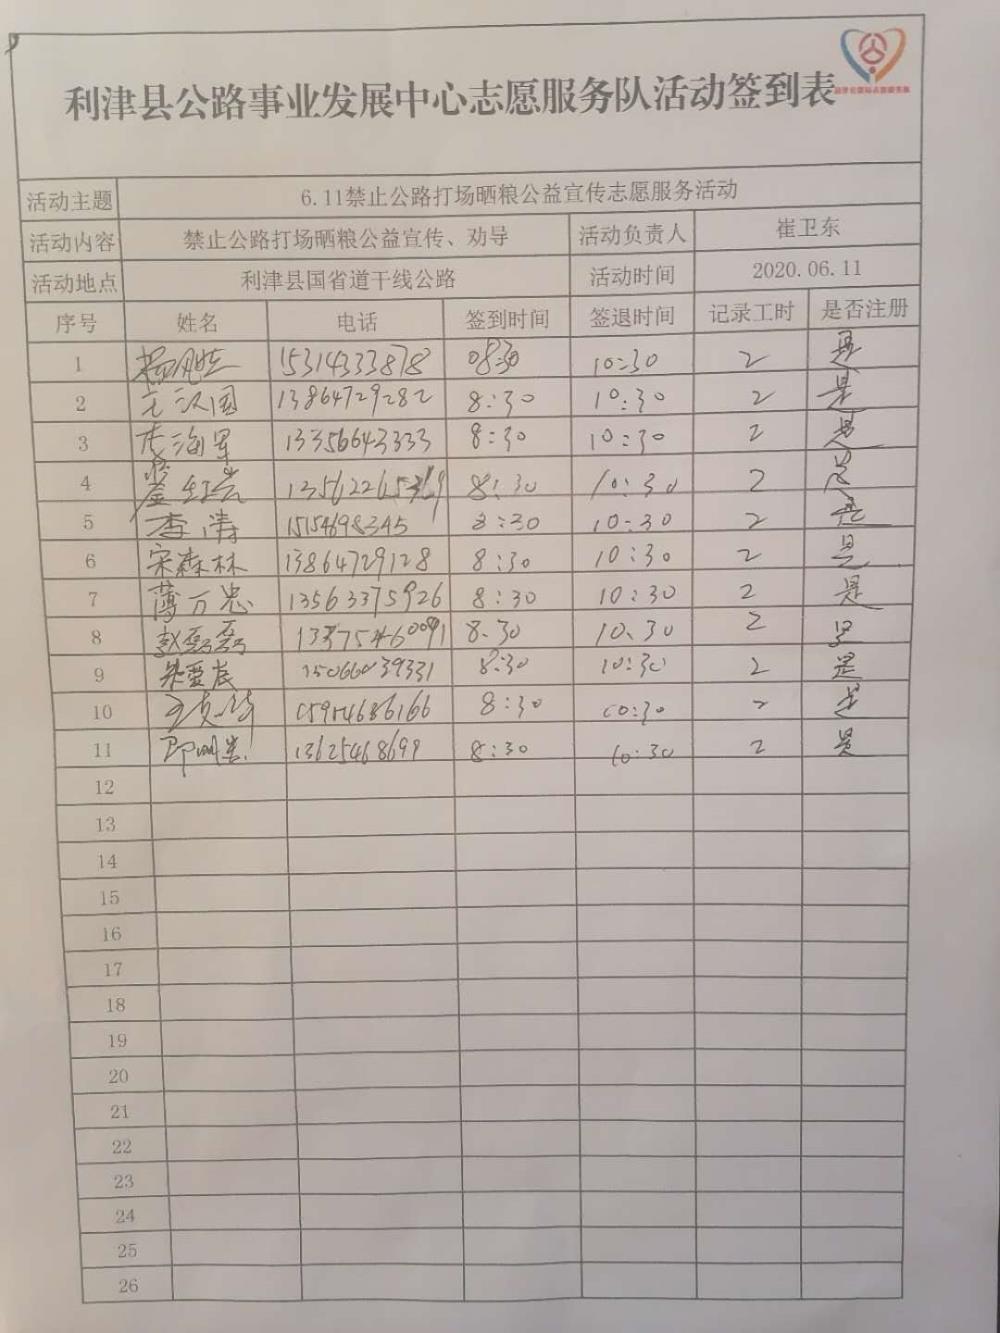 利津县公路事业发展中心志愿服务队活动签到表
活动主题 6.11禁止公路打场晒粮公益宣传志愿服务活动
活动内容 禁止公路打场晒粮公益宣传、劝导 活动负责人 崔卫东
活动地点 利津县国省道干线公路 活动时间 2020.06.11
序号 姓名 电话 签到时间 签退时间 记录工时 是否注册
1 15314333878 08:30 10:30 2 是
2 王汉国 13864729282 8:30 10:30 2 是
3 海军 13356643333 8:30 10:30 2 是
4 8:30 10:30 2 是
5 李涛 15154698345 8:30 10:30 2 是
6 宋森林 13864729128 8:30 10:30 2 是
7 薄万忠 13563375926 8:30 10:30 2 是
8 赵磊磊 8:30 10:30 2 是
9 15066039331 8:30 10:30 2 是
10 8:30 10:30 2 是
11 13625468699 8:30 10:30 2 是
12
13
14
15
16
17
18
19
20
21
22
23
24
25
26